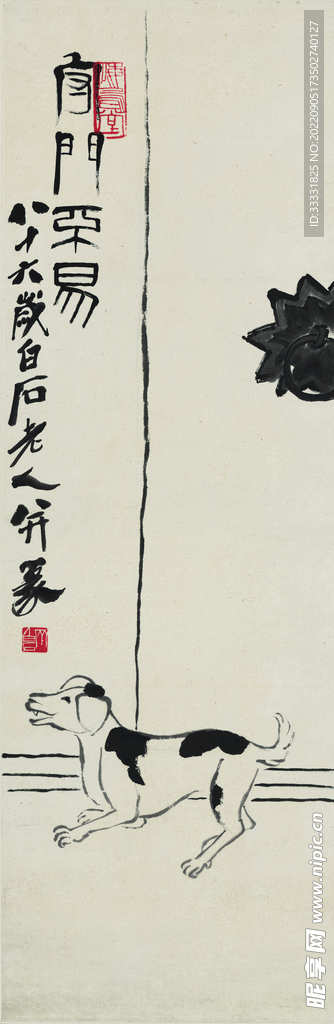 守門不易
八十六歲白石老人并篆
ID:33331825 NO:20220905173502740127
昵享网 www.nipic.cn